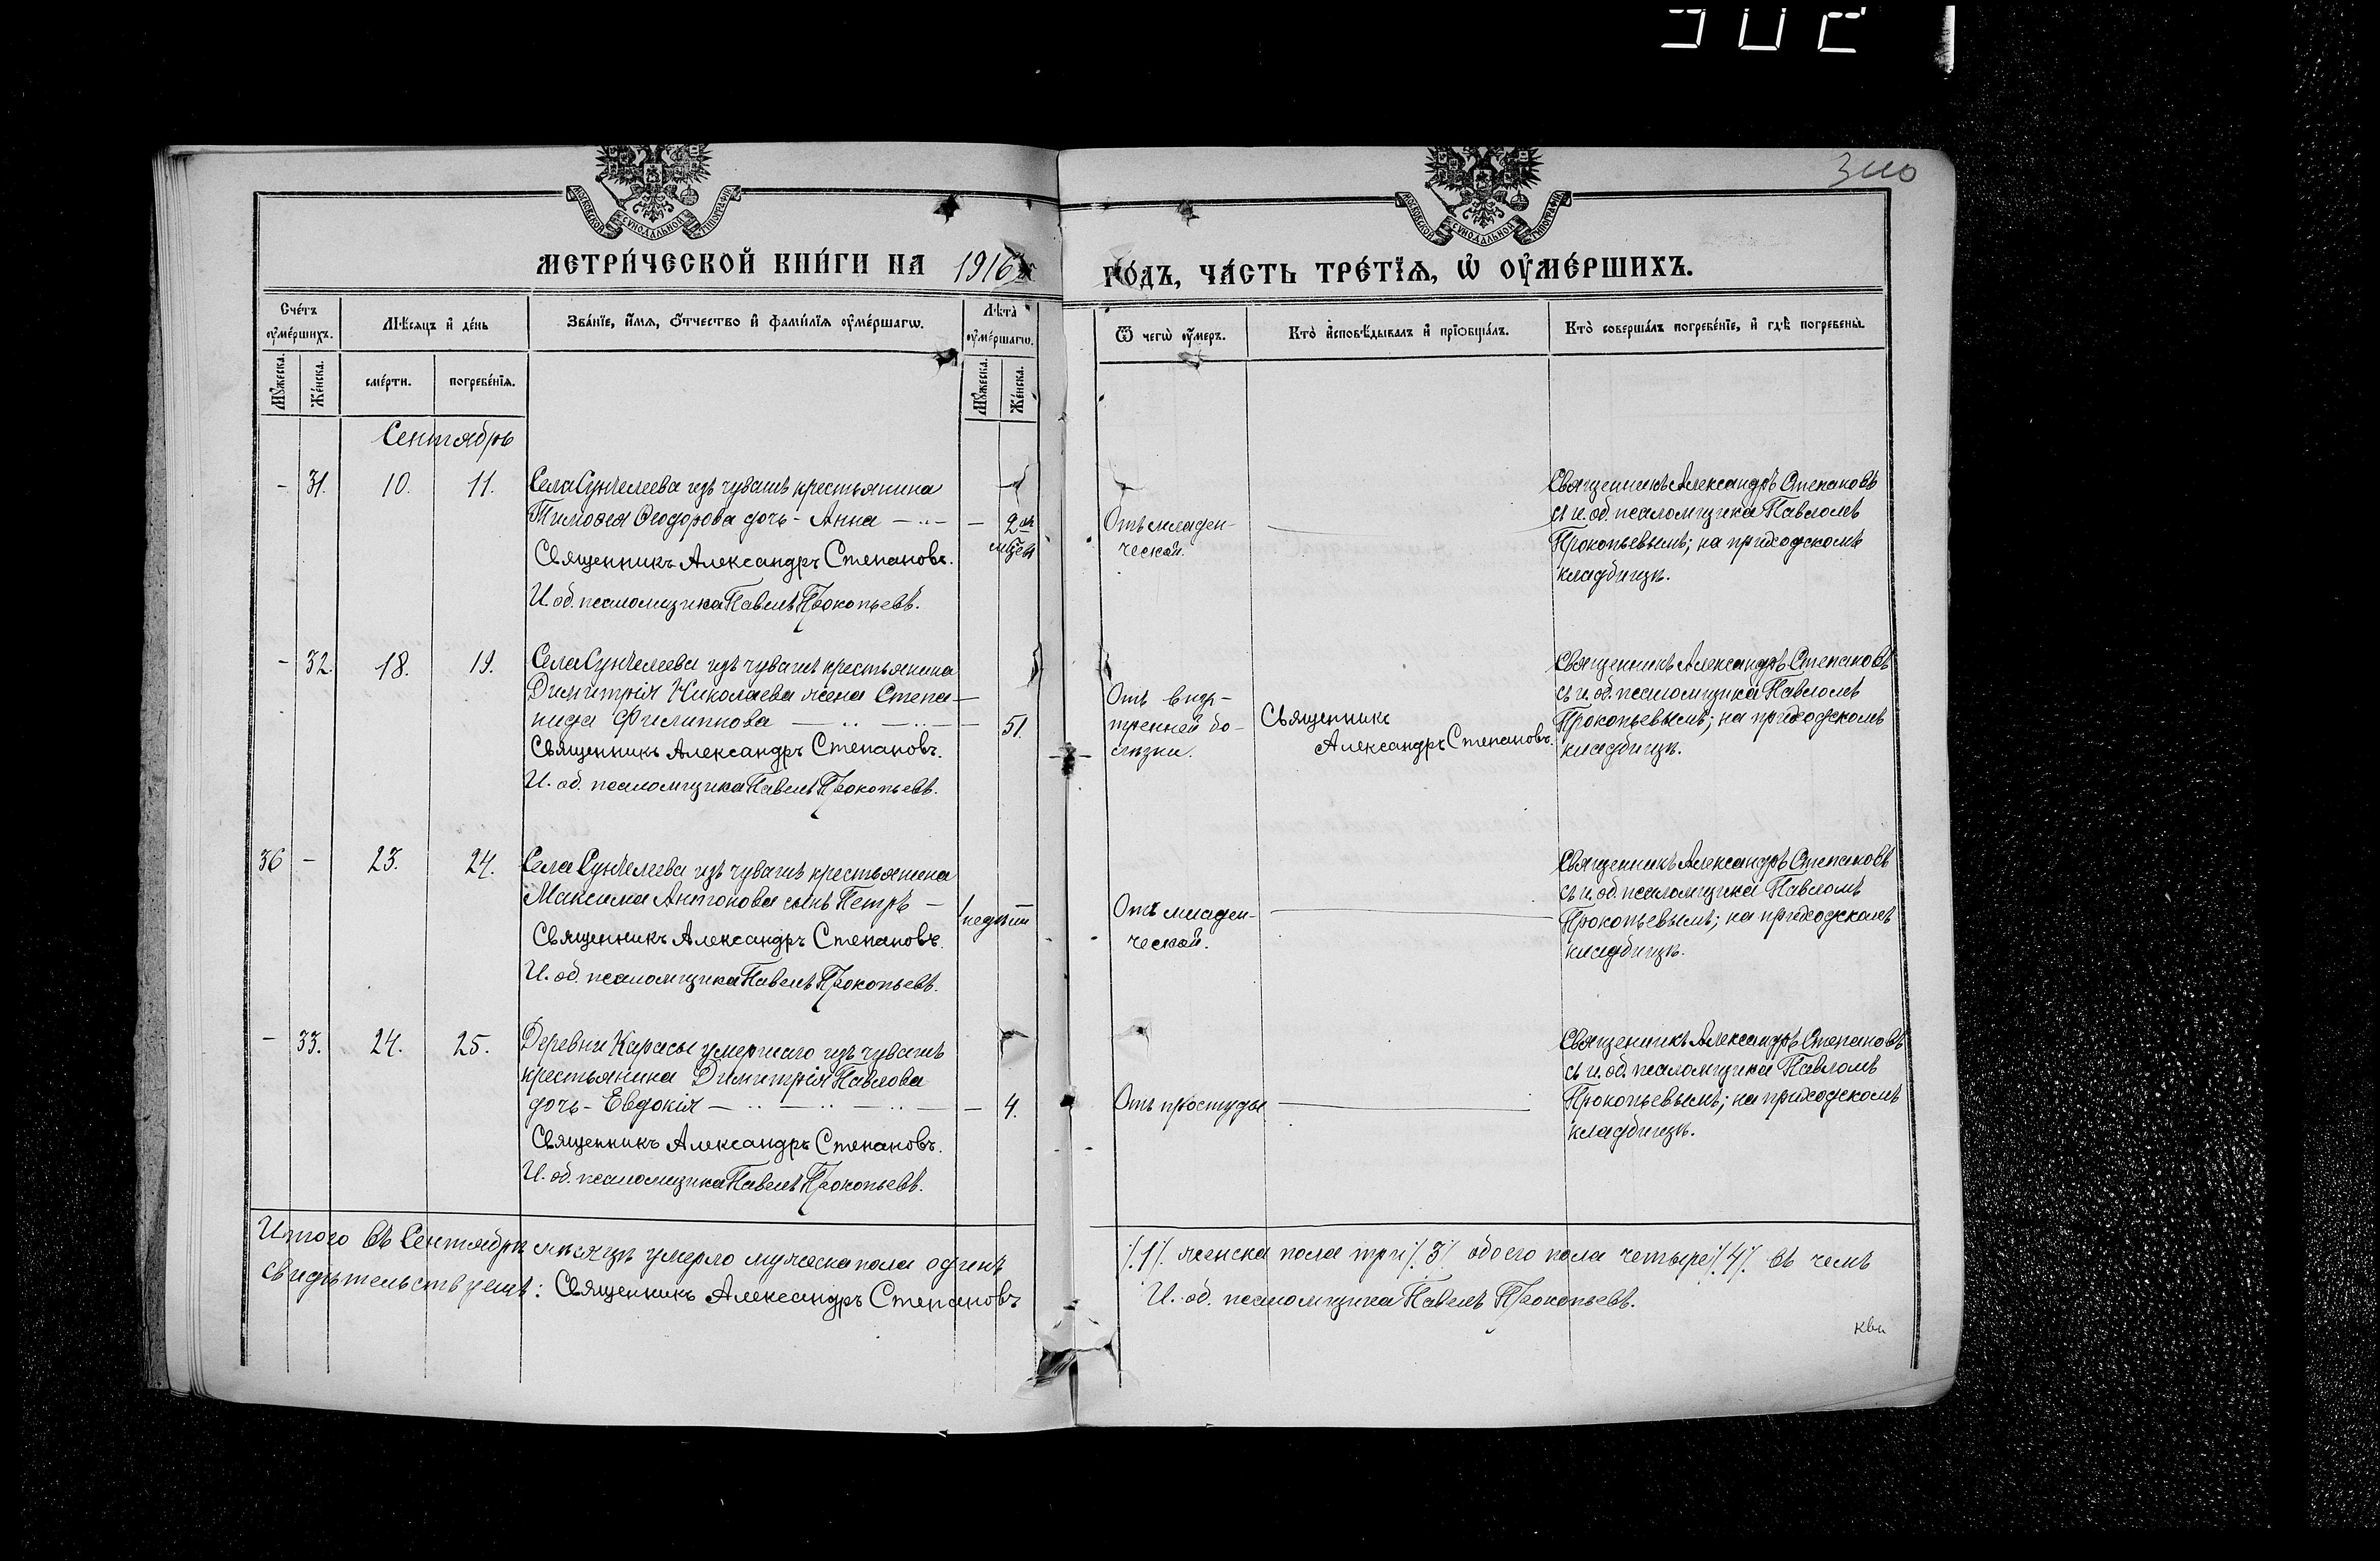 МЕТРИ́ЧЕСКОЙ КНИ́ГИ НА 1916
ГО́ДЪ, ЧА́СТЬ ТРЕ́ТЇѦ, Ѡ҆ ОУ҆МЕ́РШИХЪ.
Сче́тъ оу҆ме́ршихъ.
Мꙋ́жеска.
Же́нска.
Мѣ́сяцъ и҆ де́нь
сме́рти.
погребе́нїѧ.
Зва́нїе, и҆́мѧ, ѻ҆́тчество и҆ фами́лїѧ оу҆ме́ршагѡ.
Лѣ́та оу҆ме́ршагѡ.
Мꙋ́жеска.
Же́нска.
Ѿ чегѡ̀ оу҆́меръ.
Кто̀ и҆сповѣ́дывалъ и҆ прїѡбща́лъ.
Кто̀ соверша́лъ погребе́нїе, и҆ гдѣ̀ погребены̀.
Сентябрь
- 31. 10. 11.
Села Сунчелеева изъ чувашъ крестьянина
Тимофея Ѳеодорова дочь - Анна
Священникъ Александръ Степановъ.
И. об. псаломщика Павелъ Прокопьевъ.
- 2
Отъ младен-
ческой.
Священникъ Александръ Степановъ
съ и. об. псаломщика Павломъ
Прокопьевымъ; на приходскомъ
кладбищѣ.
- 32. 18. 19.
Села Сунчелеева изъ чувашъ крестьянина
Димитрія Николаева жена Степа-
нида Филиппова
Священникъ Александръ Степановъ.
И. об. псаломщика Павелъ Прокопьевъ.
51.
Отъ внут-
тренней бо-
лѣзни.
Священникъ
Александръ Степановъ.
Священникъ Александръ Степановъ
съ и. об. псаломщика Павломъ
Прокопьевымъ; на приходскомъ
кладбищѣ.
36 - 23. 24.
Села Сунчелеева изъ чувашъ крестьянина
Максима Антонова сынъ Петръ -
Священникъ Александръ Степановъ.
И. об. псаломщика Павелъ Прокопьевъ.
1 недѣли
Отъ младен-
ческой.
Священникъ Александръ Степановъ
съ и. об. псаломщика Павломъ
Прокопьевымъ; на приходскомъ
кладбищѣ.
- 33. 24. 25.
Деревни Карасы умершаго изъ чувашъ
крестьянина Димитрія Павлова
дочь - Евдокія
Священникъ Александръ Степановъ.
И. об. псаломщика Павелъ Прокопьевъ.
- 4.
Отъ простуды
Священникъ Александръ Степановъ
съ и. об. псаломщика Павломъ
Прокопьевымъ; на приходскомъ
кладбищѣ.
Итого въ Сентябрѣ мѣсяцѣ умерло мужеска пола одинъ
свидѣтельствуемъ: Священникъ Александръ Степановъ
/.1/. женска пола три /.3/. обоего пола четыре /.4/. въ чемъ
И. об. псаломщика Павелъ Прокопьевъ.